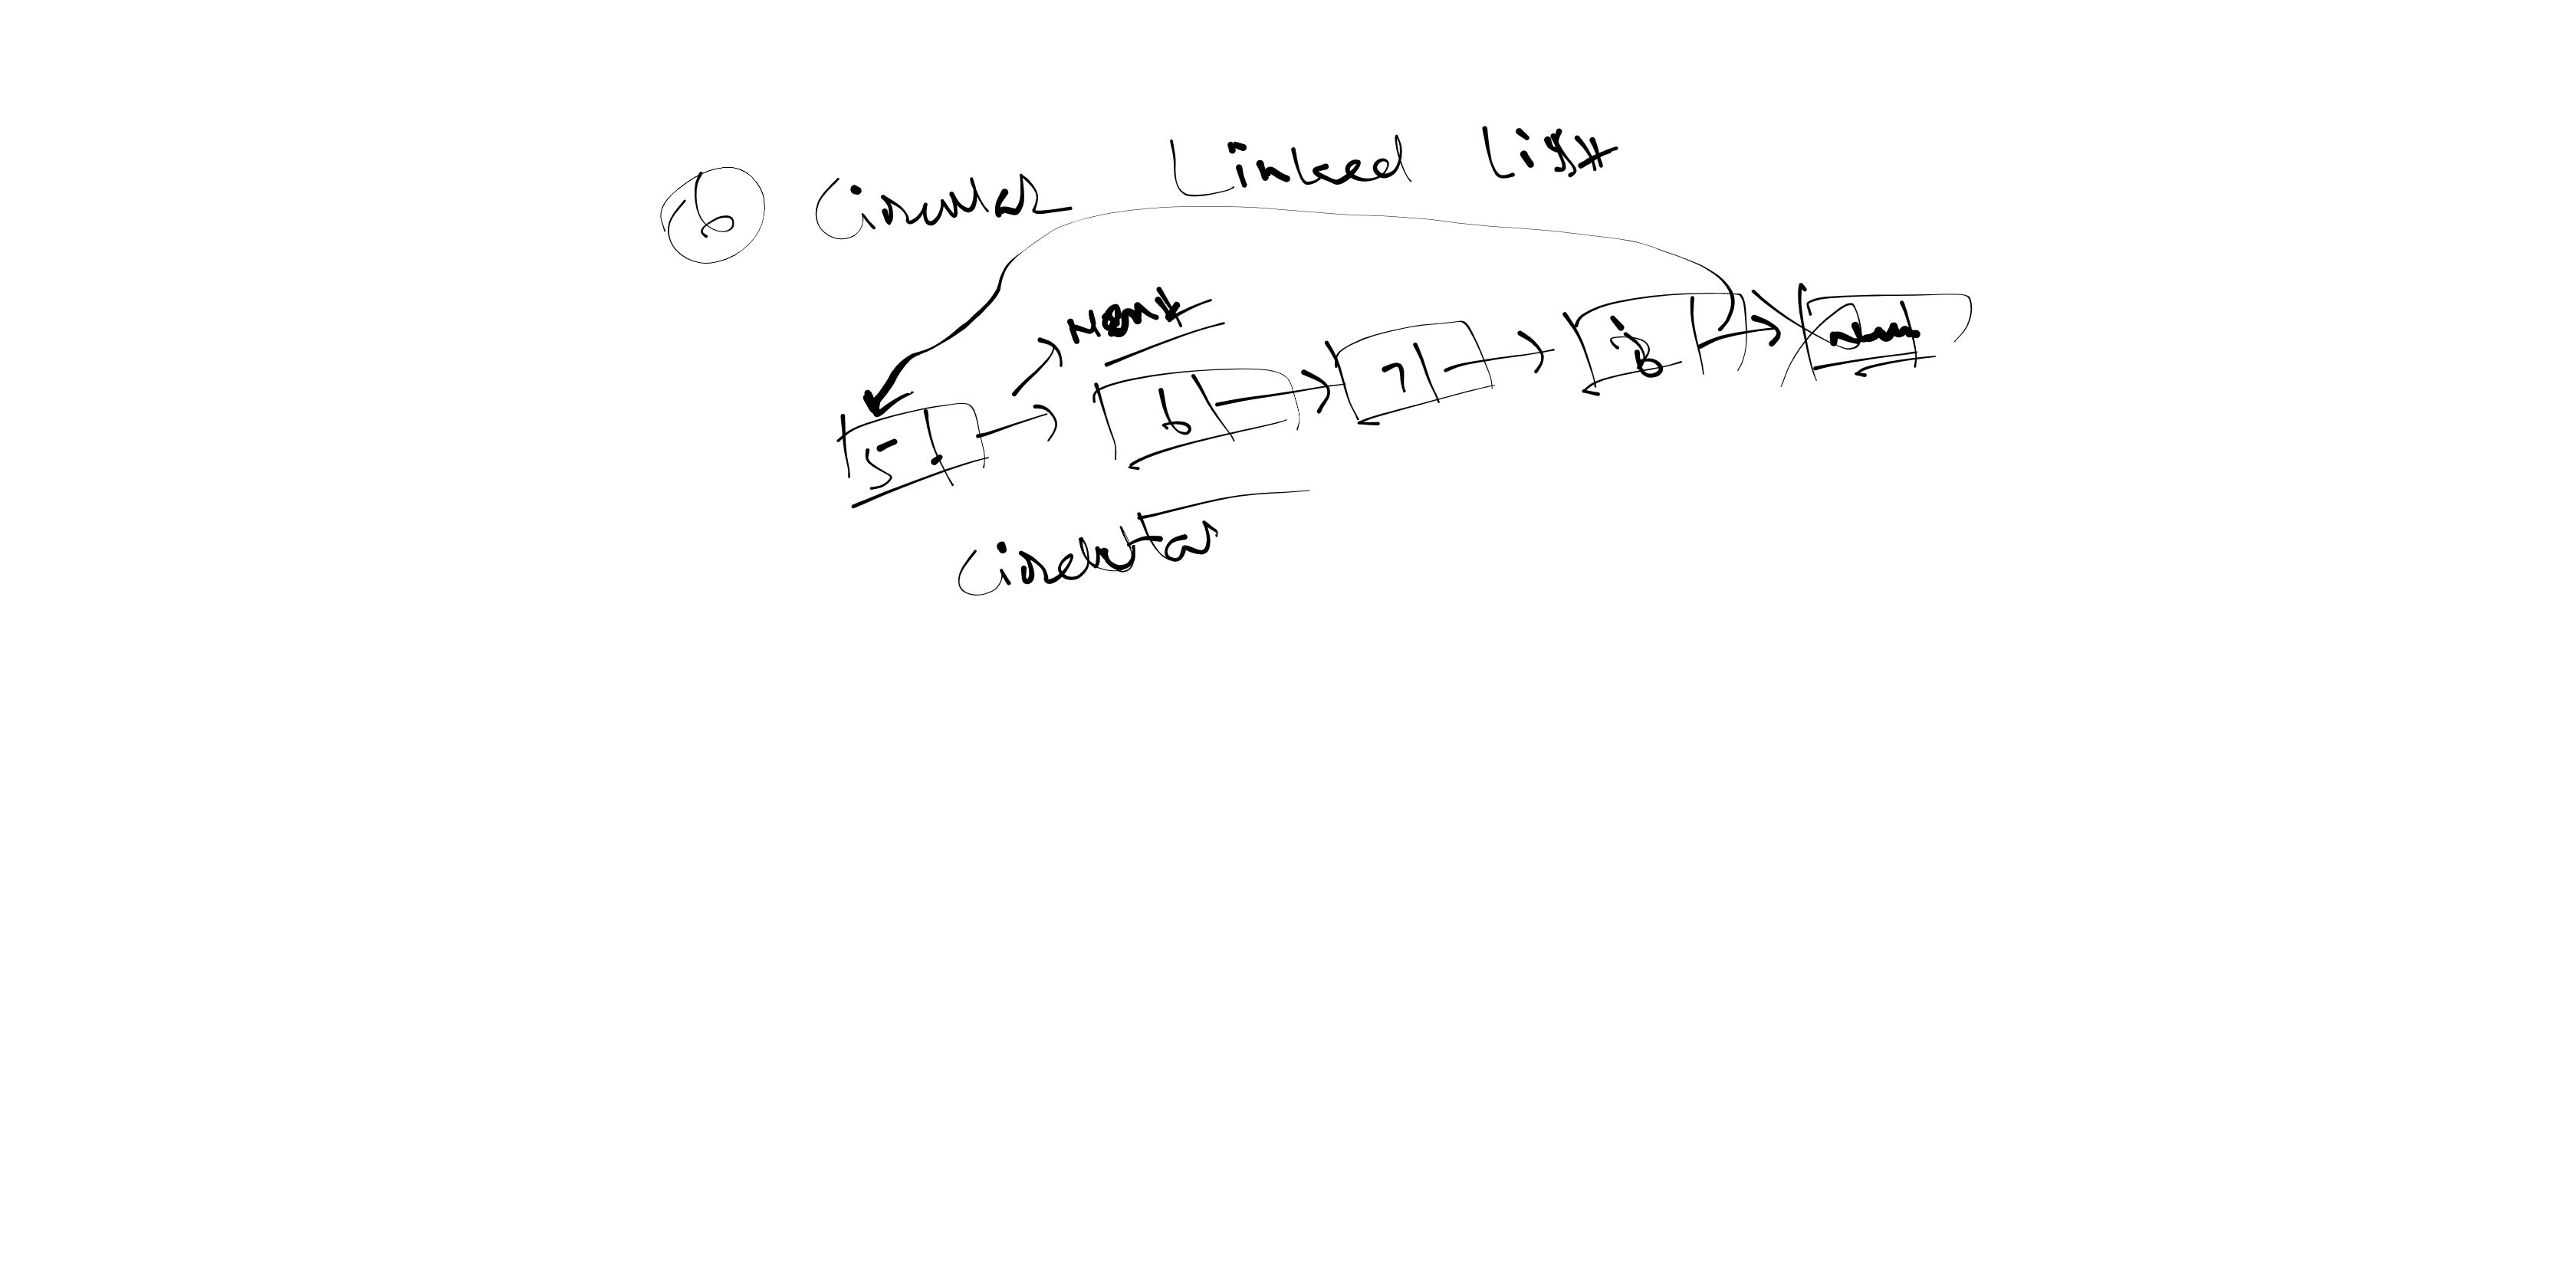 6 Circular Linked List
Next
5 6 7 8 Null
Circular